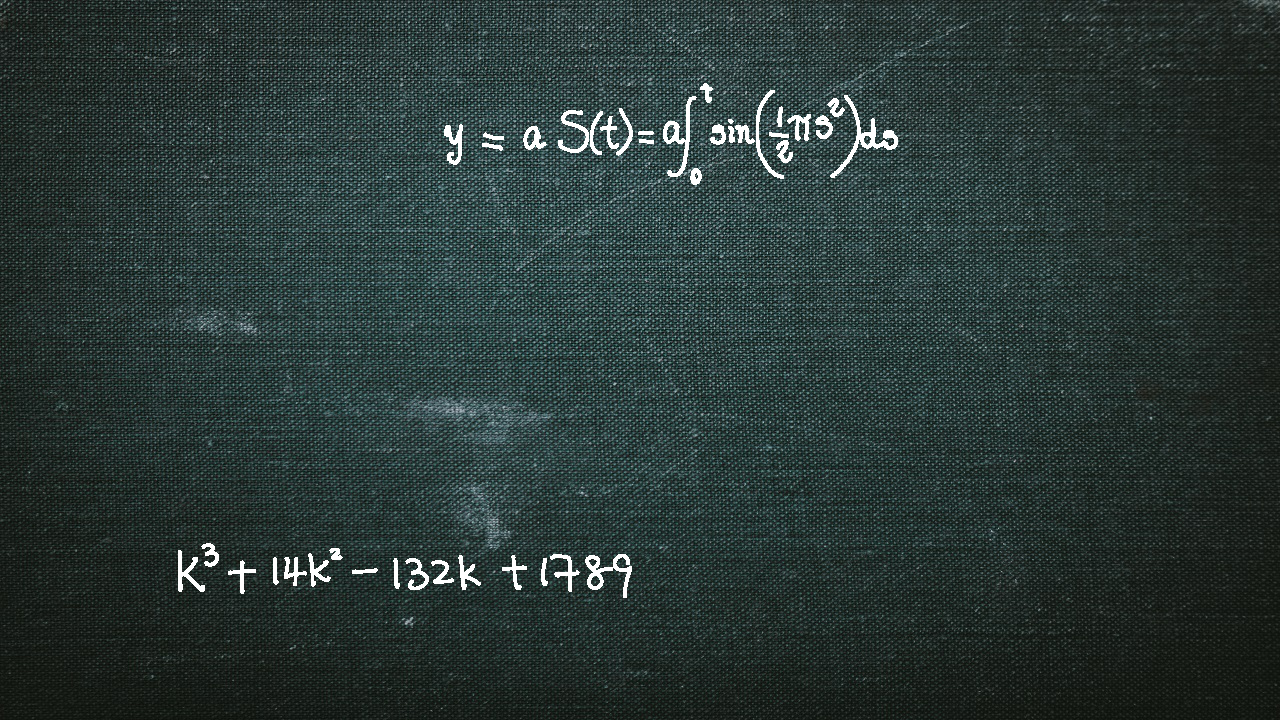 y = a S(t) = a∫₀ᵗ sin(½πs²)ds
k³ + 14k² − 132k + 1789